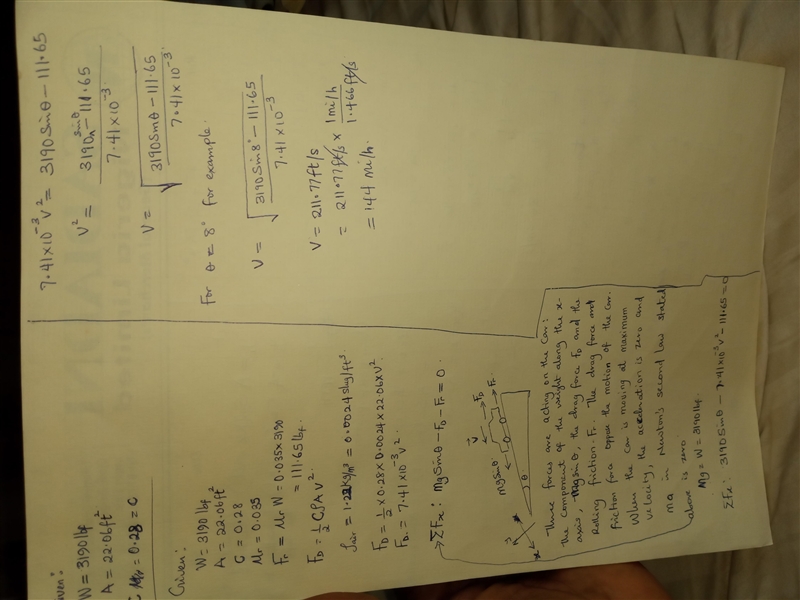 iven:
W = 3190 lbf
A = 22.06ft²
C Mr = 0.28 = C
Given:
W = 3190 lbf
A = 22.06ft²
C = 0.28
Mr = 0.035
Fr = Mr W = 0.035x3190
= 111.65 lbf.
FD = ½ CρAV².
ρair = 1.22kg/m³ = 0.0024 slug/ft³.
FD = ½ x 0.28 x 0.0024 x 22.06 x V².
FD = 7.41x10⁻³ V².
→ ΣFx: MgSinθ - FD - Fr = 0.
x
mgsinθ
V
FD
Fr
θ
Three forces are acting on the Car:
the component of the weight along the x-
axis, mgSinθ, the drag force FD and the
Rolling friction Fr. The drag force and
friction force oppose the motion of the car.
When the car is moving at maximum
velocity, the acceleration is zero and
ma in Newton's second law stated
above is zero.
Mg = W = 3190lbf.
ΣFx: 3190Sinθ - 7.41x10⁻³V² - 111.65 = 0
7.41x10⁻³ V² = 3190Sinθ - 111.65
V² = 3190 sinθ - 111.65 / 7.41 x 10⁻³.
V = √(3190Sinθ - 111.65 / 7.41 x 10⁻³)
For θ = 8° for example:
V = √(3190Sin8° - 111.65 / 7.41 x 10⁻³)
V = 211.77ft/s
= 211.77ft/s x 1mi/h / 1.466ft/s
= 144 mi/h.